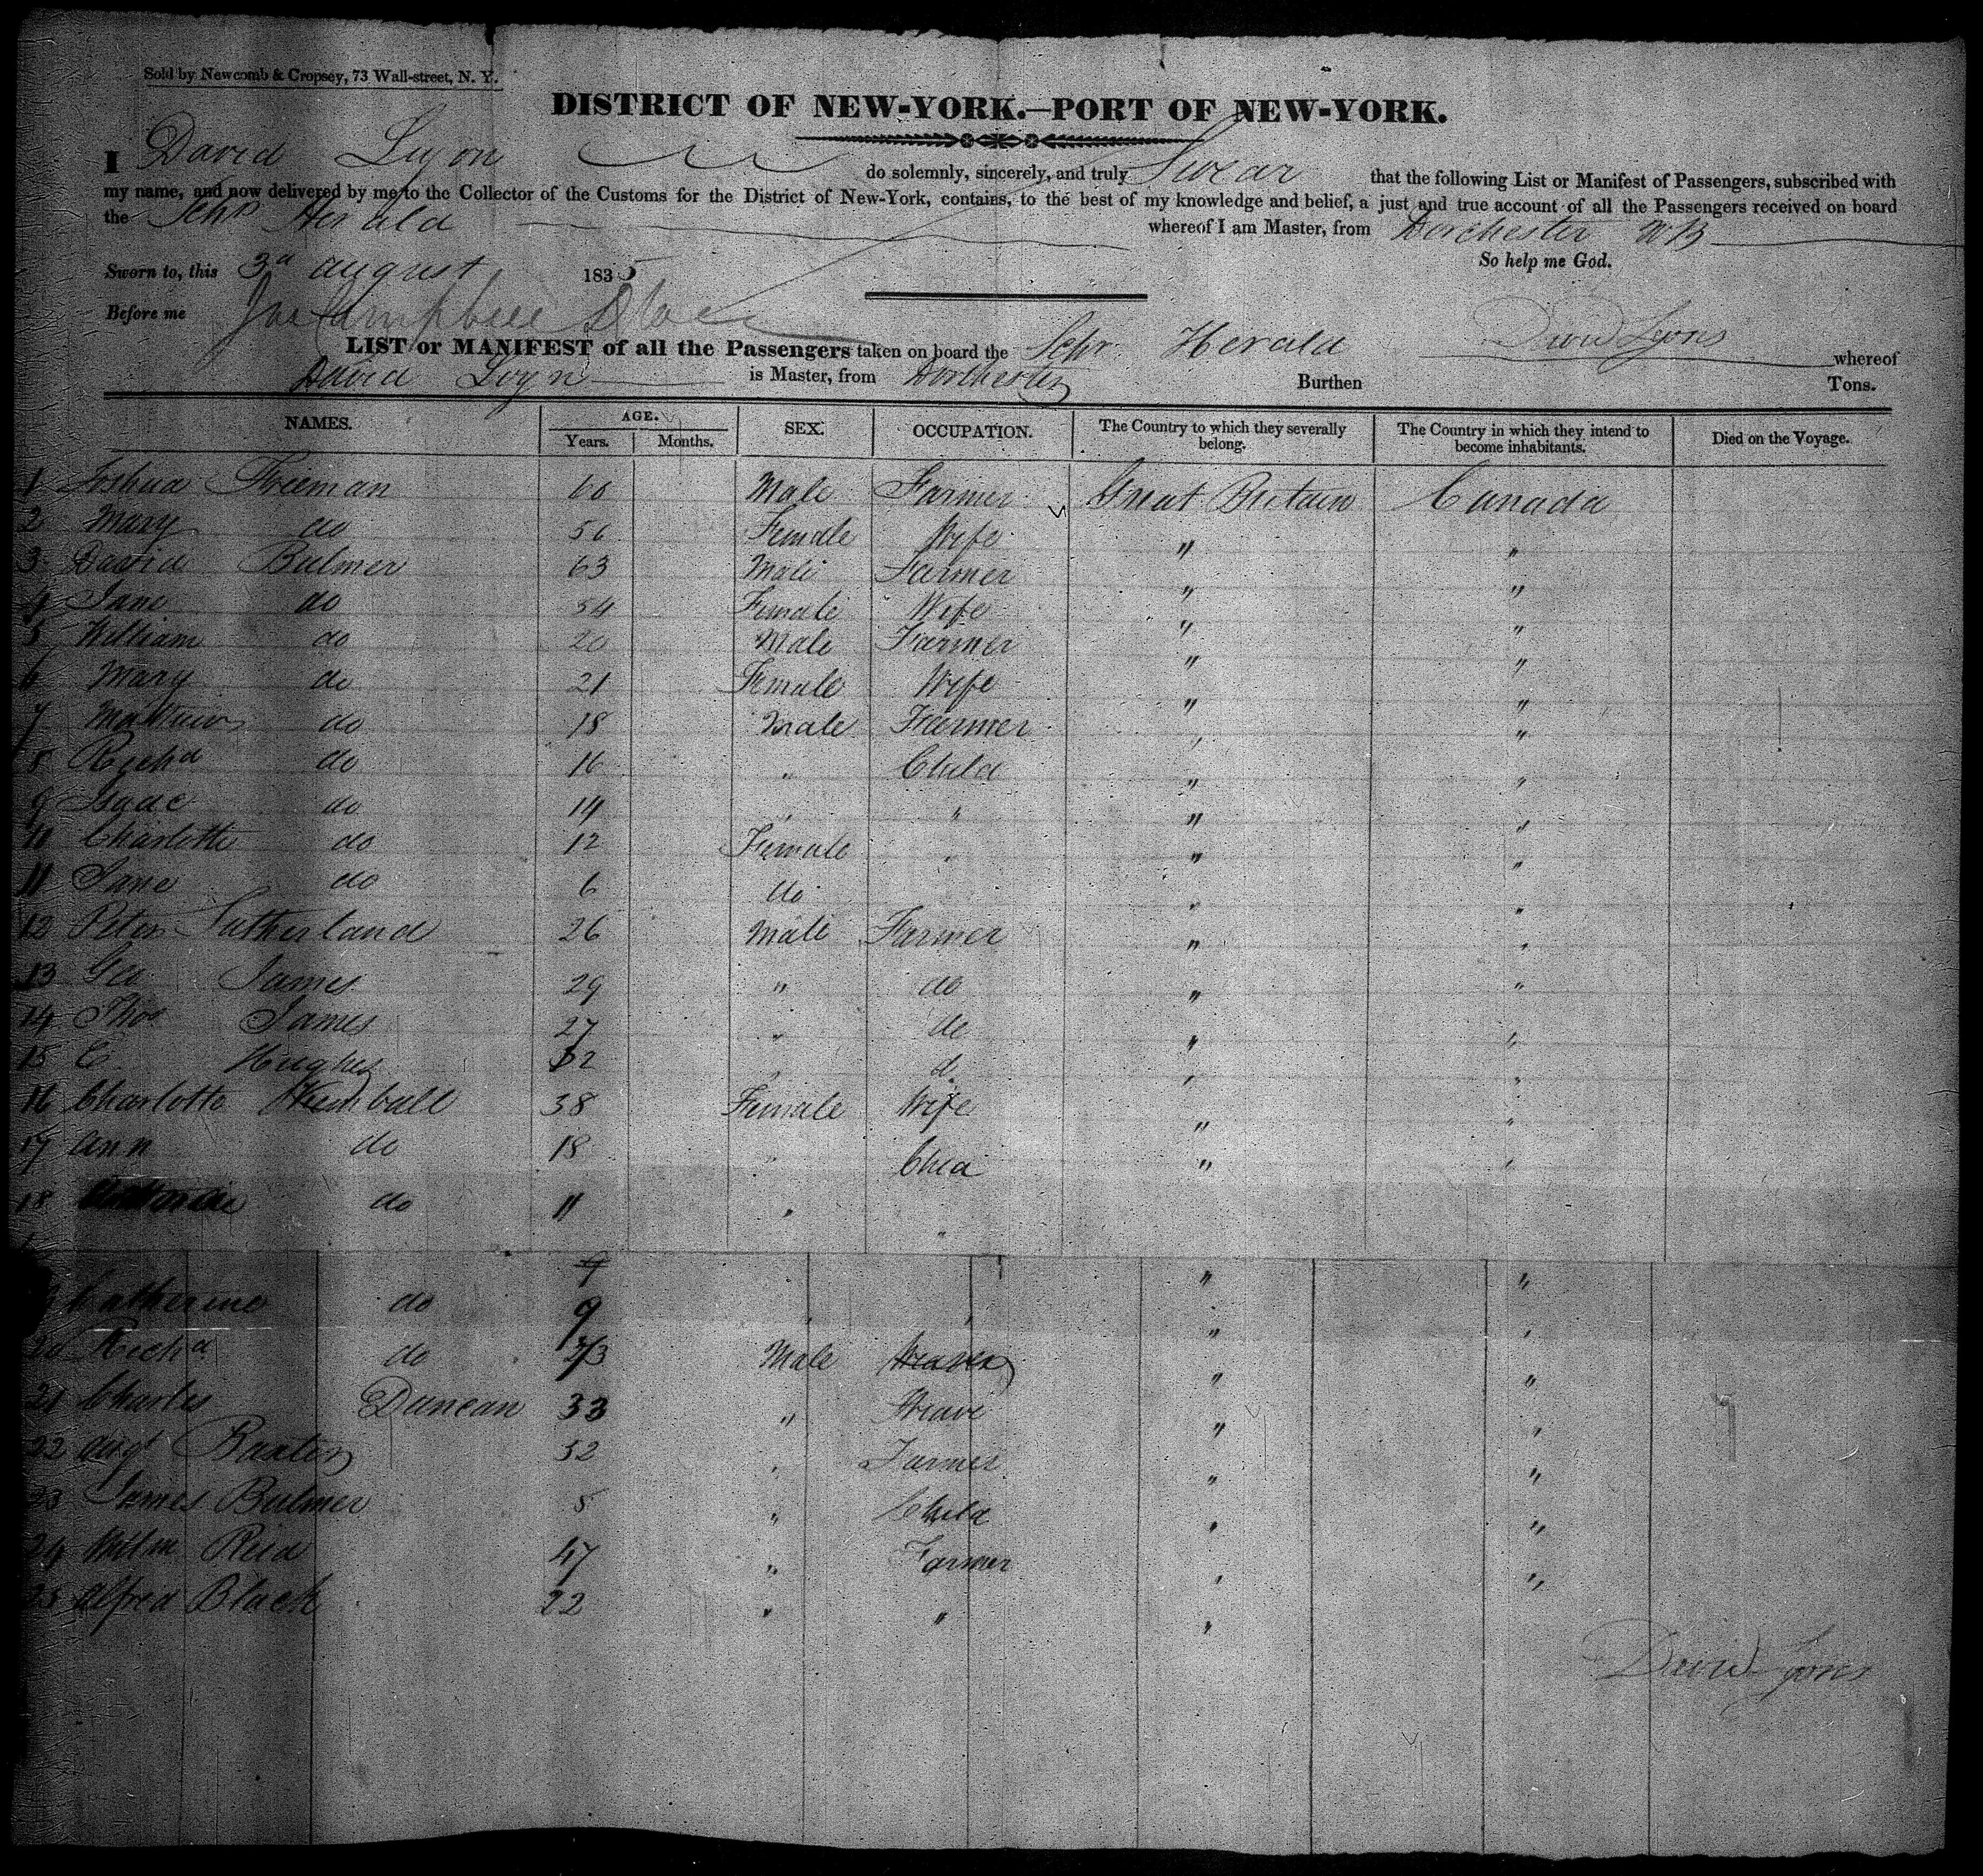 Sold by Newcomb & Cropsey, 73 Wall-street, N. Y.
DISTRICT OF NEW-YORK.—PORT OF NEW-YORK.
I David Lyon do solemnly, sincerely, and truly Swear that the following List or Manifest of Passengers, subscribed with
my name, and now delivered by me to the Collector of the Customs for the District of New-York, contains, to the best of my knowledge and belief, a just and true account of all the Passengers received on board
the Schr Herald whereof I am Master, from Dorchester NB
Sworn to, this 3d august 1835 So help me God.
Before me Jas Campbell
David Lyons
LIST or MANIFEST of all the Passengers taken on board the Schr Herald whereof
David Loyn is Master, from Dorchester Burthen Tons.
NAMES. AGE. SEX. OCCUPATION. The Country to which they severally belong. The Country in which they intend to become inhabitants. Died on the Voyage.
Years. Months.
1 Joshua Freeman 60 Male Farmer Great Britain Canada
2 Mary do 56 Female Wife " "
3 David Bulmer 63 Male Farmer " "
4 Jane do 54 Female Wife " "
5 William do 20 Male Farmer " "
6 Mary do 21 Female Wife " "
7 Matthew do 18 Male Farmer " "
8 Richd do 16 " Child " "
9 Isaac do 14 " " " "
10 Charlotte do 12 Female " " "
11 Jane do 6 do " "
12 Peter Sutherland 26 Male Farmer " "
13 Geo James 29 " do " "
14 Thos James 27 " do " "
15 C Hughes 32 " d " "
16 Charlotte Kemball 38 Female Wife " "
17 Ann do 18 " Chid " "
18 do 11 " " " "
19 Catherine do 9 " " " "
20 Richd do Male Weaver " "
21 Charles Duncan 33 " Weave " "
22 Augt Baxter 52 " Farmer " "
23 James Bulmer 5 " Child " "
24 Wilm Reid 47 " Farmer " "
25 Alfred Black 22 " " "
David Lyons